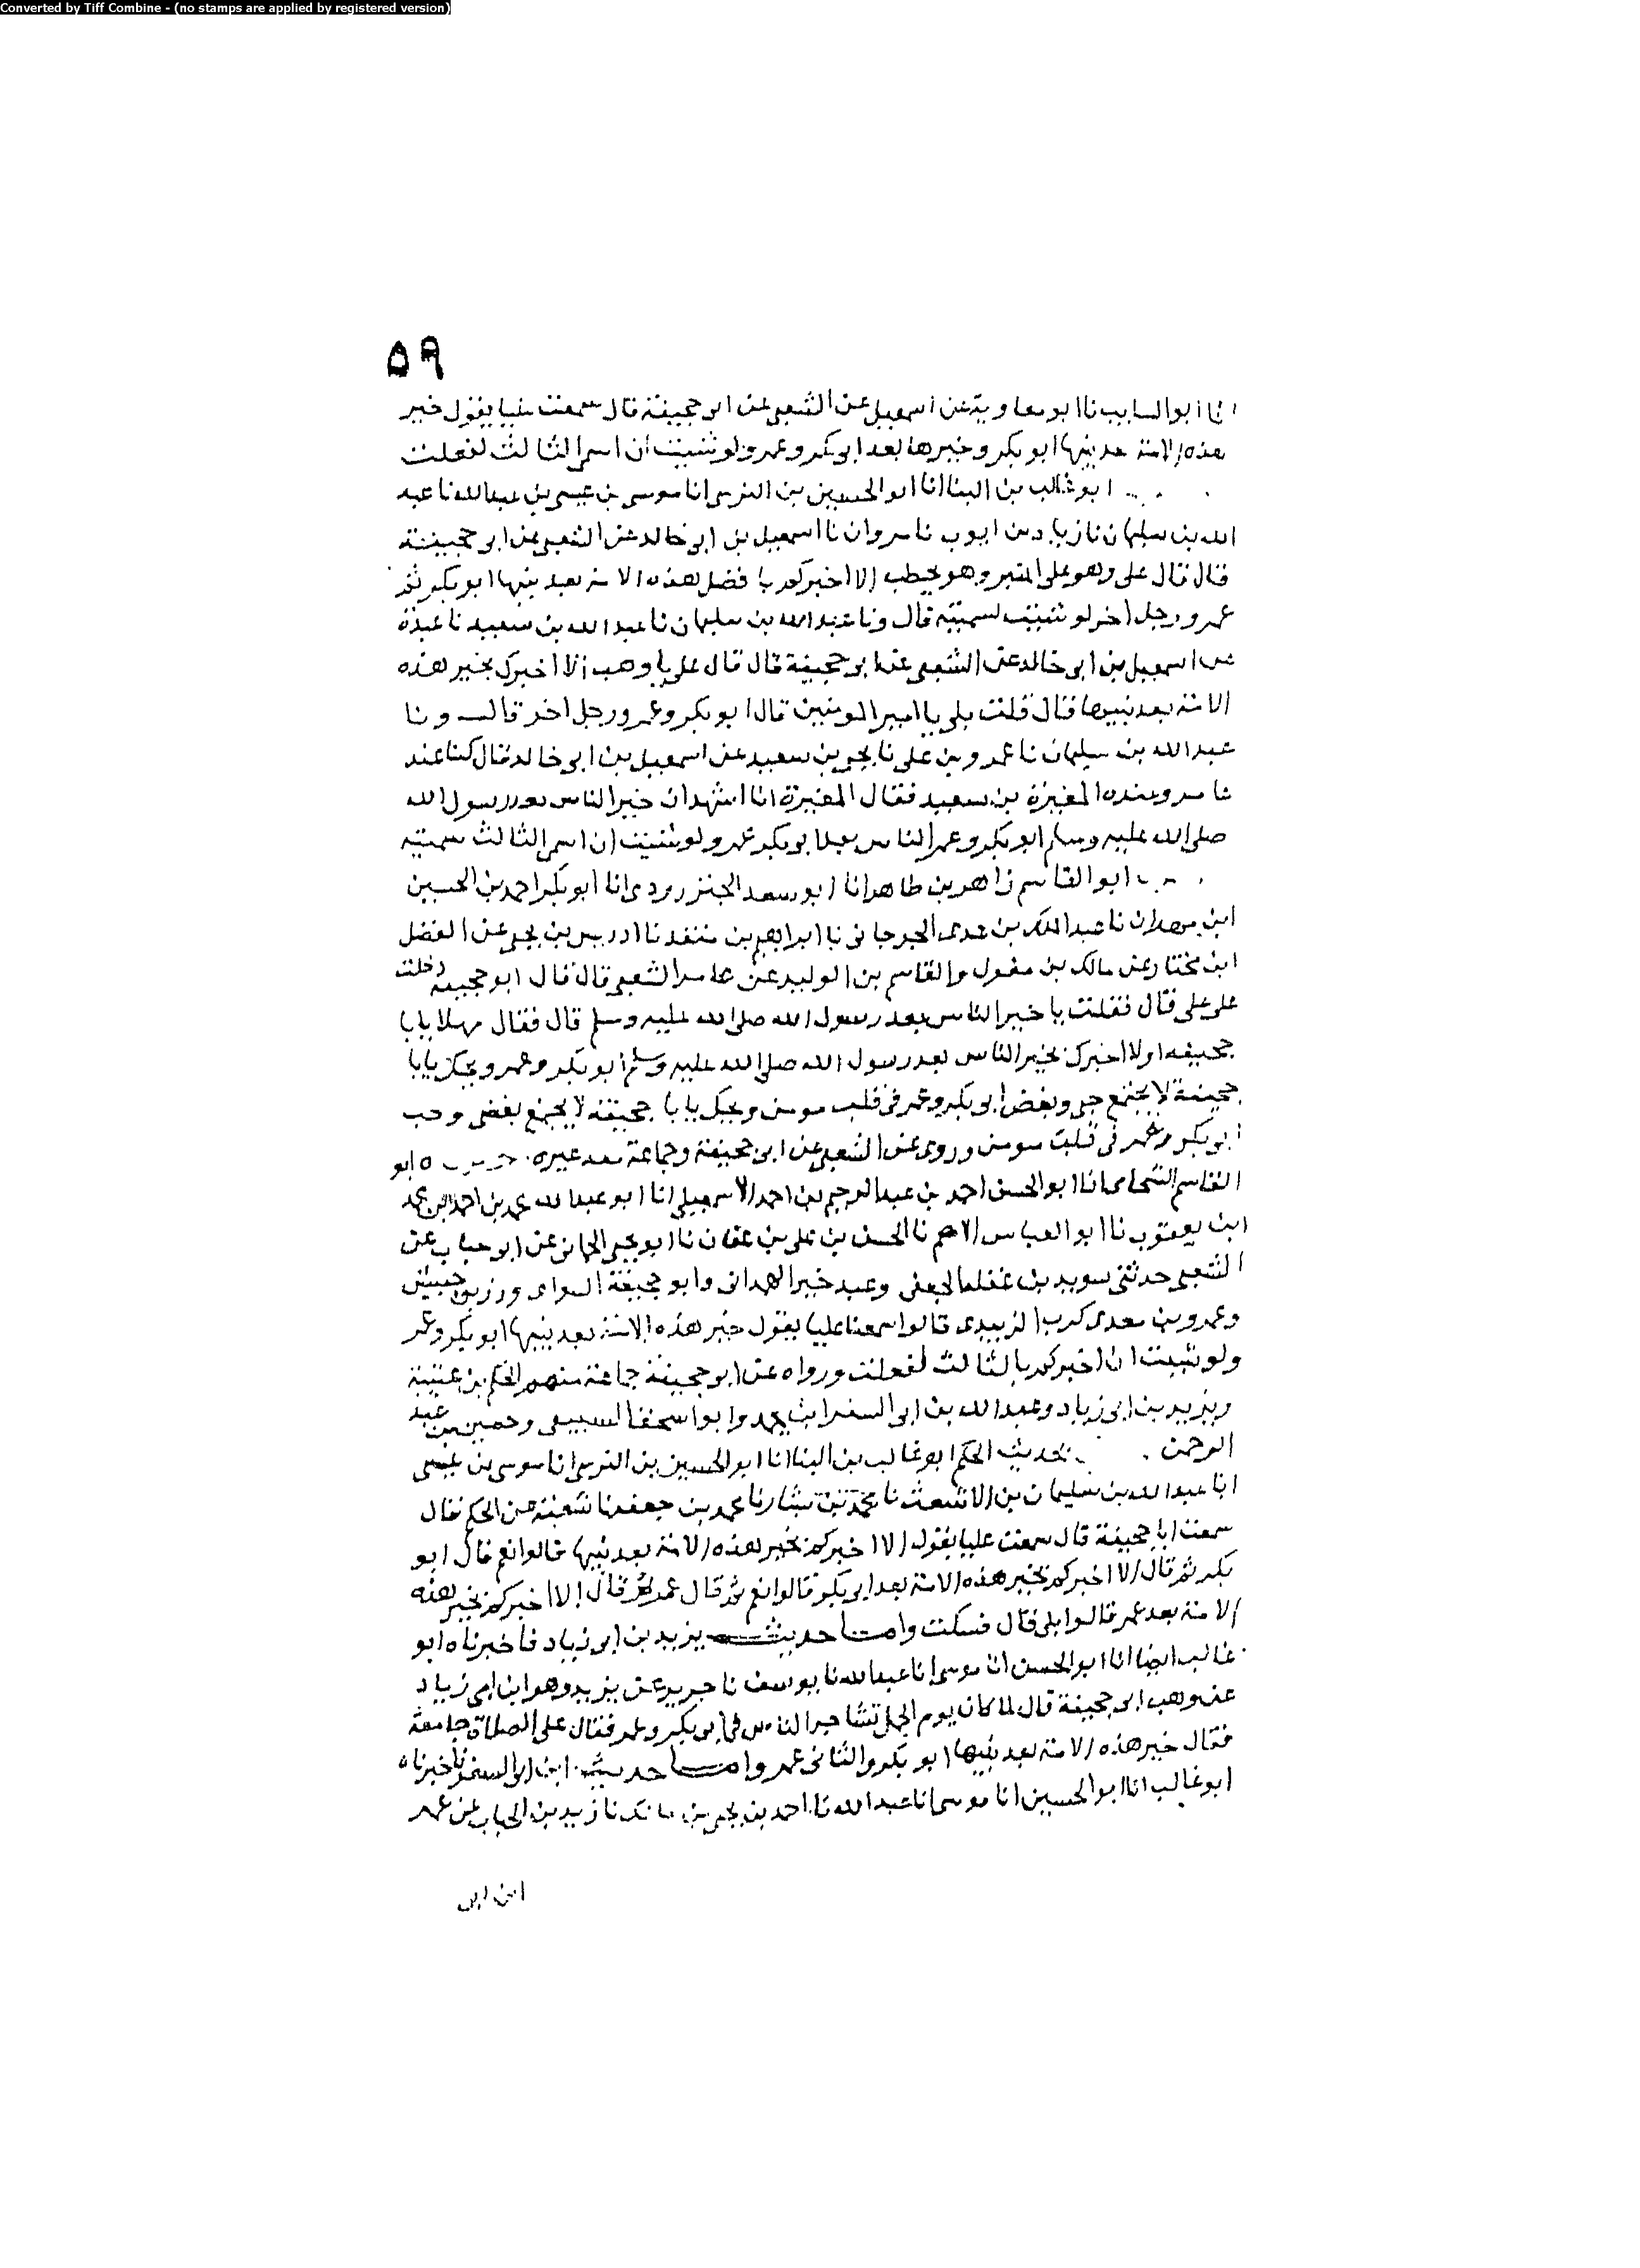 Converted by Tiff Combine - (no stamps are applied by registered version)
٥٩
انا ابو السايب نا ابو معاوية عن اسمعيل عن الشعبي عن ابي جحيفة قال سمعت عليا يقول خير
هذه الامة بعد نبيها ابو بكر وخيرها بعد ابي بكر وعمر ولو شئت ان اسمي الثالث لفعلت
ابو غالب بن البنا انا ابو الحسين بن النرسي انا موسى بن عيسى بن عبد الله نا عبد
الله بن سليمان نا زياد بن ايوب نا مروان نا اسمعيل بن ابي خالد عن الشعبي عن ابي جحيفة
قال قال على وهو على المنبر وهو يخطب الا اخبركم بافضل هذه الامة بعد نبيها ابو بكر ثم
عمر ورجل اخر لو شئت لسميته قال ونا عبد الله بن سليمان نا عبد الله بن سعيد نا عبدة
عن اسمعيل بن ابي خالد عن الشعبي عن ابي جحيفة قال قال علي يا وهب الا اخبرك بخير هذه
الامة بعد نبيها فقال قلت بلى يا امير المومنين قال ابو بكر وعمر ورجل اخر قال ونا
عبد الله بن سليمان نا عمرو بن على نا يحيى بن سعيد عن اسمعيل بن ابي خالد قال كنا عند
عامر وعنده المغيرة بن سعيد فقال المغيرة انا اشهد ان خير الناس بعد رسول الله
صلى الله عليه وسلم ابو بكر وعمر الناس بعد ابو بكر عمر ولو شئت ان اسمي الثالث سميته
ابو القاسم زاهر بن طاهر انا ابو سعد الجنزرودي انا ابو بكر احمد بن الحسين
ابن مهران نا عبد الملك بن عدى الجرجاني نا ابراهيم بن منقذ نا ادريس بن يحيى عن الفضل
ابن مختار عن مالك بن مغول والقاسم بن الوليد عن عامر الشعبي قال قال ابو جحيفة دخلت
على علي قال فقلت يا خير الناس بعد رسول الله صلى الله عليه وسلم قال فقال مهلا يا با
جحيفه اولا اخبرك بخير الناس بعد رسول الله صلى الله عليه وسلم ابو بكر وعمر ويحك يا با
جحيفة لا يجتمع حبي وبغض ابي بكر وعمر في قلب مومن ويحك يا با جحيفة لا يجتمع بغضي وحب
ابو بكر وعمر في قلب مومن وروى عن الشعبي عن ابي جحيفة وجماعة معه غيره ه ابو
القاسم الشحامي انا ابو الحسن احمد بن عبد الرحيم بن احمد الاسمعيلي انا ابو عبد الله محمد بن احمد بن محمد
ابن يعقوب نا ابو العباس الاصم نا الحسن بن على بن عفان نا ابو يحيى الحماني عن ابو جناب عن
الشعبي حدثني سويد بن غفلة الجعفي وعبد خير الهمداني وابو جحيفة السواى وزر بن حبيش
وعمرو بن معدى كرب الزبيدى قالوا سمعنا عليا يقول خير هذه الامة بعد نبيها ابو بكر وعمر
ولو شئت ان اخبركم بالثالث لفعلت ورواه عن ابو جحيفة جماعة منهم الحكم بن عتيبة
ويزيد بن ابي زياد وعبد الله بن ابي السفر ابن محمد وابو اسحق السبيعي وحصين بن عبد
الرحمن حديث الحكم ابو غالب بن البنا انا ابو الحسين بن النرسي انا موسى بن عيسى
انا عبد الله بن سليمان بن الاشعث نا محمد بن بشار نا محمد بن جعفر نا شعبة عن الحكم قال
سمعت ابا جحيفة قال سمعت عليا يقول الا اخبركم بخير هذه الامة بعد نبيها قالوا نعم قال ابو
بكر ثم قال الا اخبركم بخير هذه الامة بعد ابي بكر قالوا نعم ثم قال عمر ثم قال الا اخبركم بخير هذه
الامة بعد عمر قالوا بلى قال فسكت واما حديث يزيد بن ابي زياد فاخبرناه ابو
غالب ايضا انا ابو الحسن انا موسى انا عبد الله نا يوسف نا جرير عن يزيد وهو ابن ابي زياد
عن وهب ابي جحيفة قال لما كان يوم الجمل تشاجر الناس في ابو بكر وعمر فقال علي الصلاة جامعة
فقال خير هذه الامة بعد نبيها ابو بكر والثاني عمر واما حديث ابن ابي السفر فاخبرناه
ابو غالب انا ابو الحسين انا موسى انا عبد الله نا احمد بن يحيى بن مالك نا زيد بن الحباب عن عمر
ابن ابي